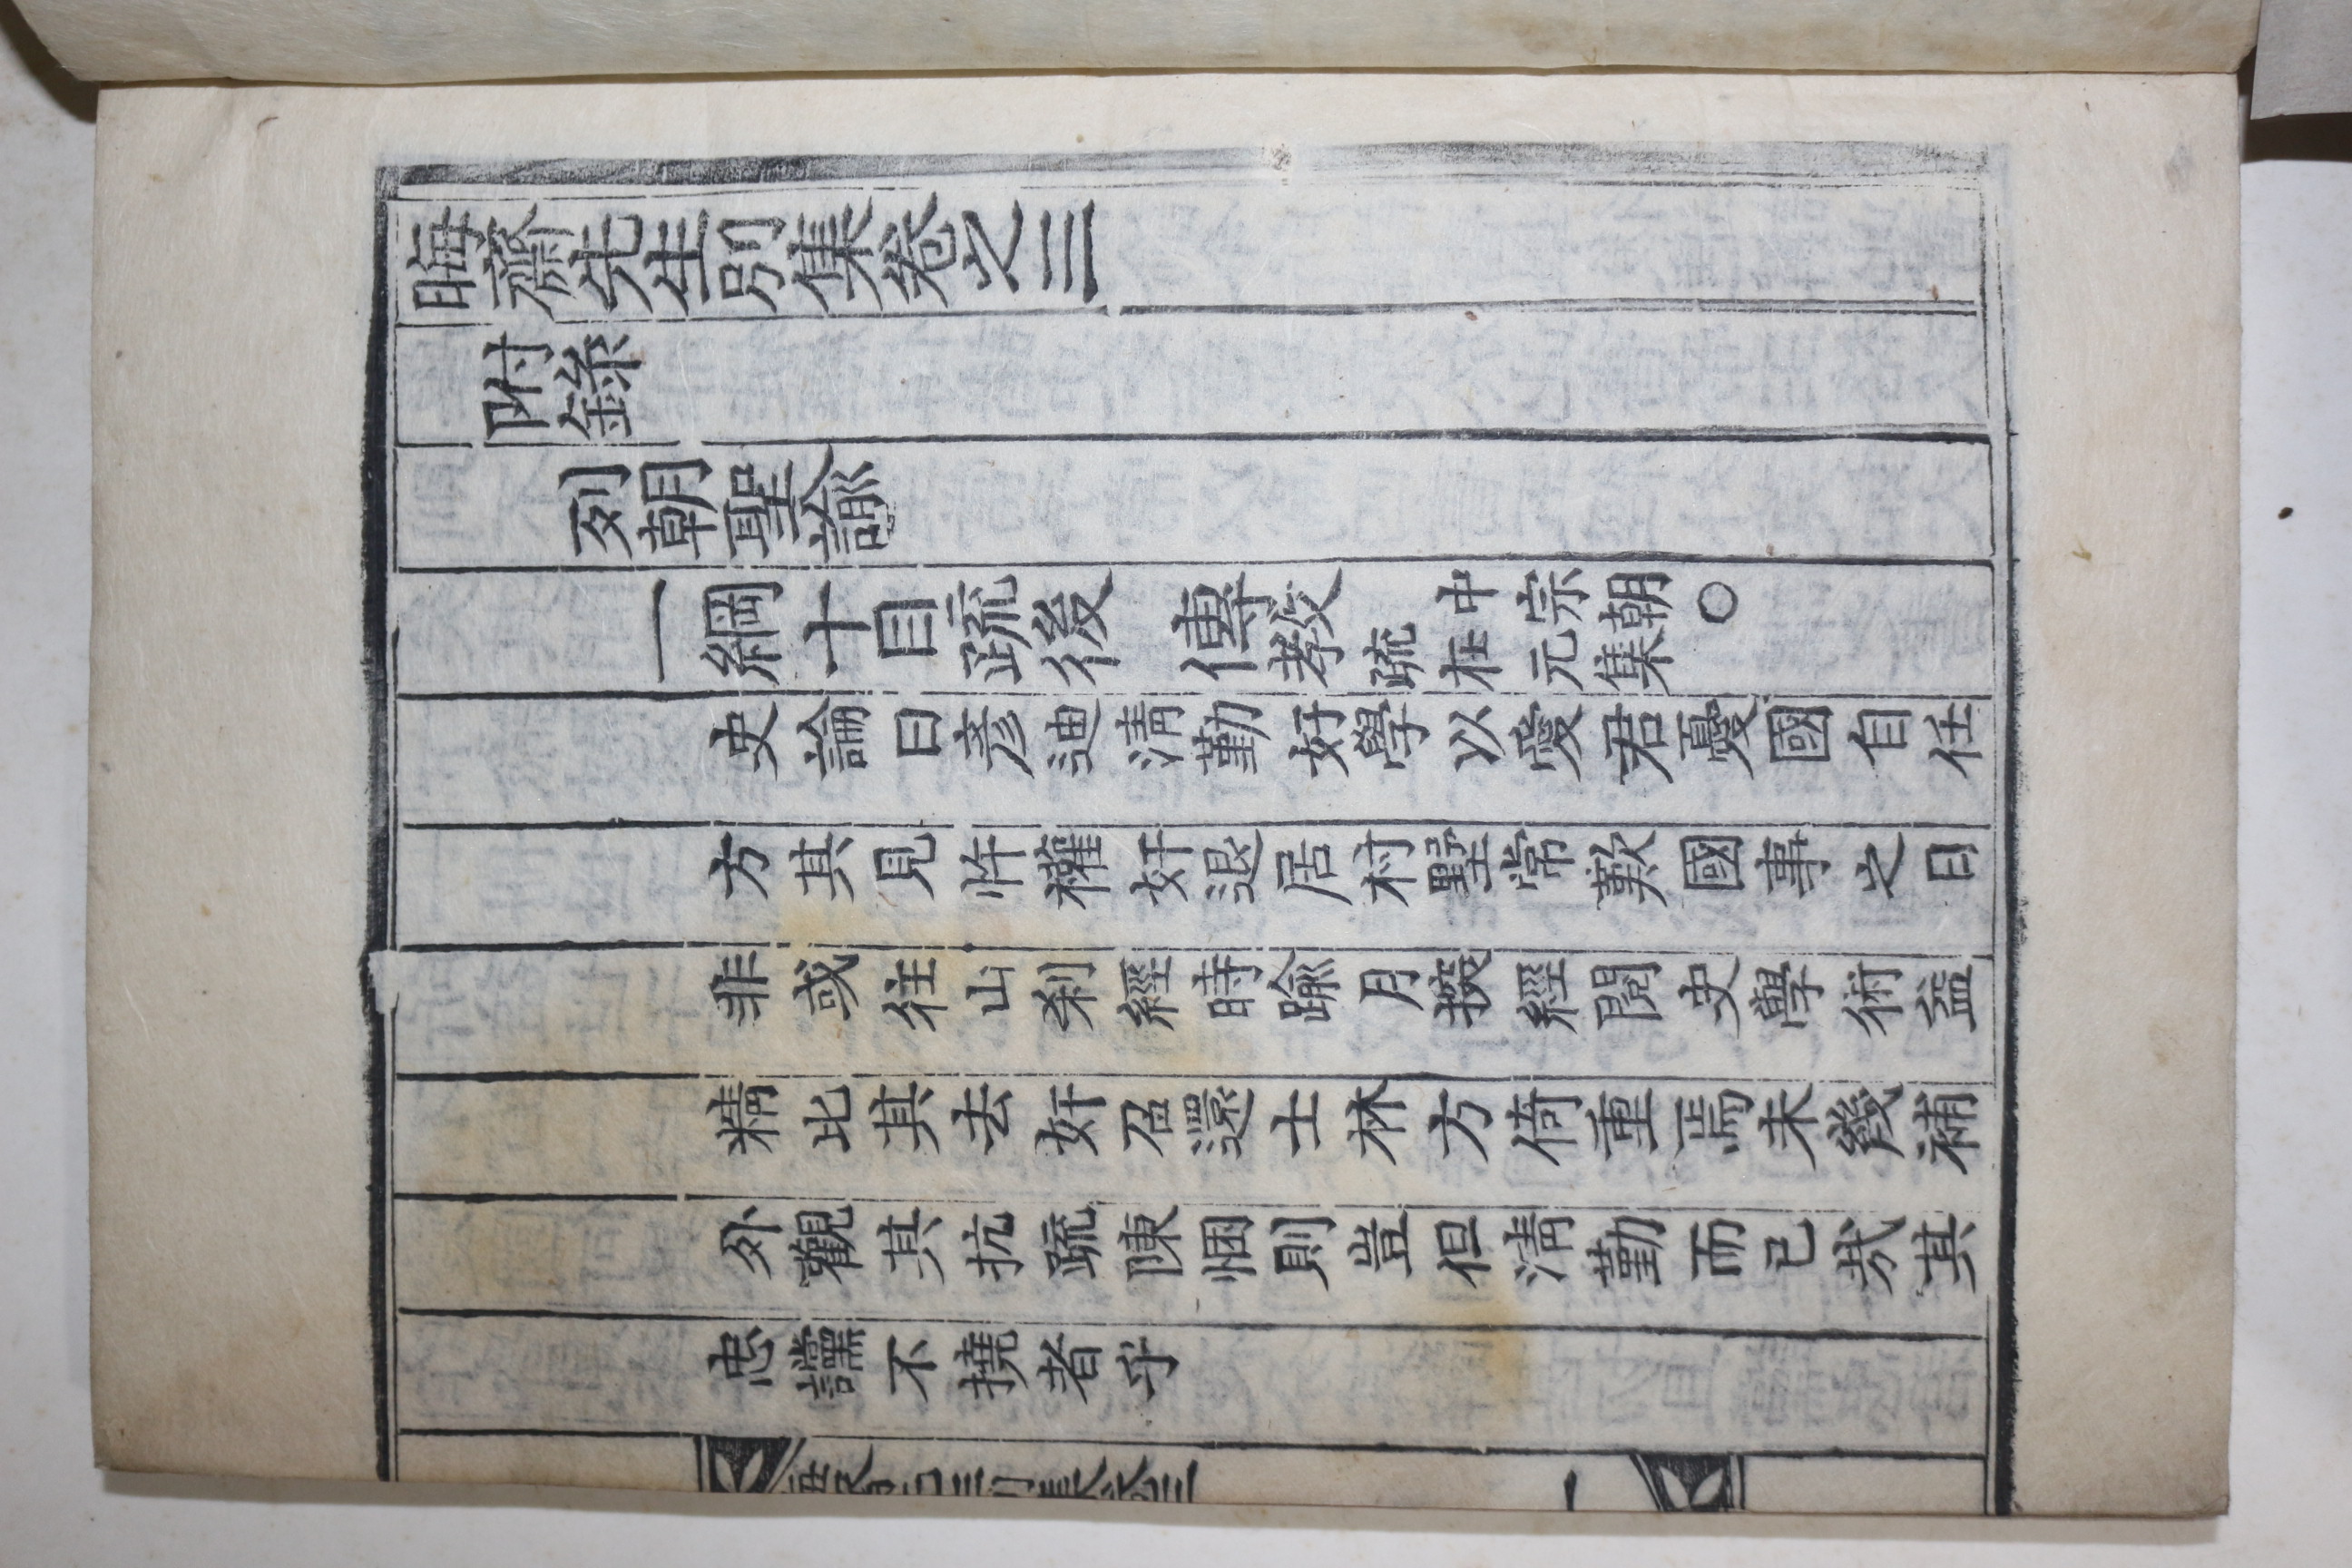 晦齋先生別集卷之三
附錄
列朝聖諭
一綱十目疏後 傳教 中宗朝○疏在元集
史論曰彥迪淸勤好學以愛君憂國自任
方其見忤權奸退居村墅常歎國事之日
非或往山刹經時踰月探經閱史學術益
精比其去奸召還士林方倚重焉未幾補
外觀其抗疏陳悃則豈但淸勤而已哉其
忠讜不撓者乎
一